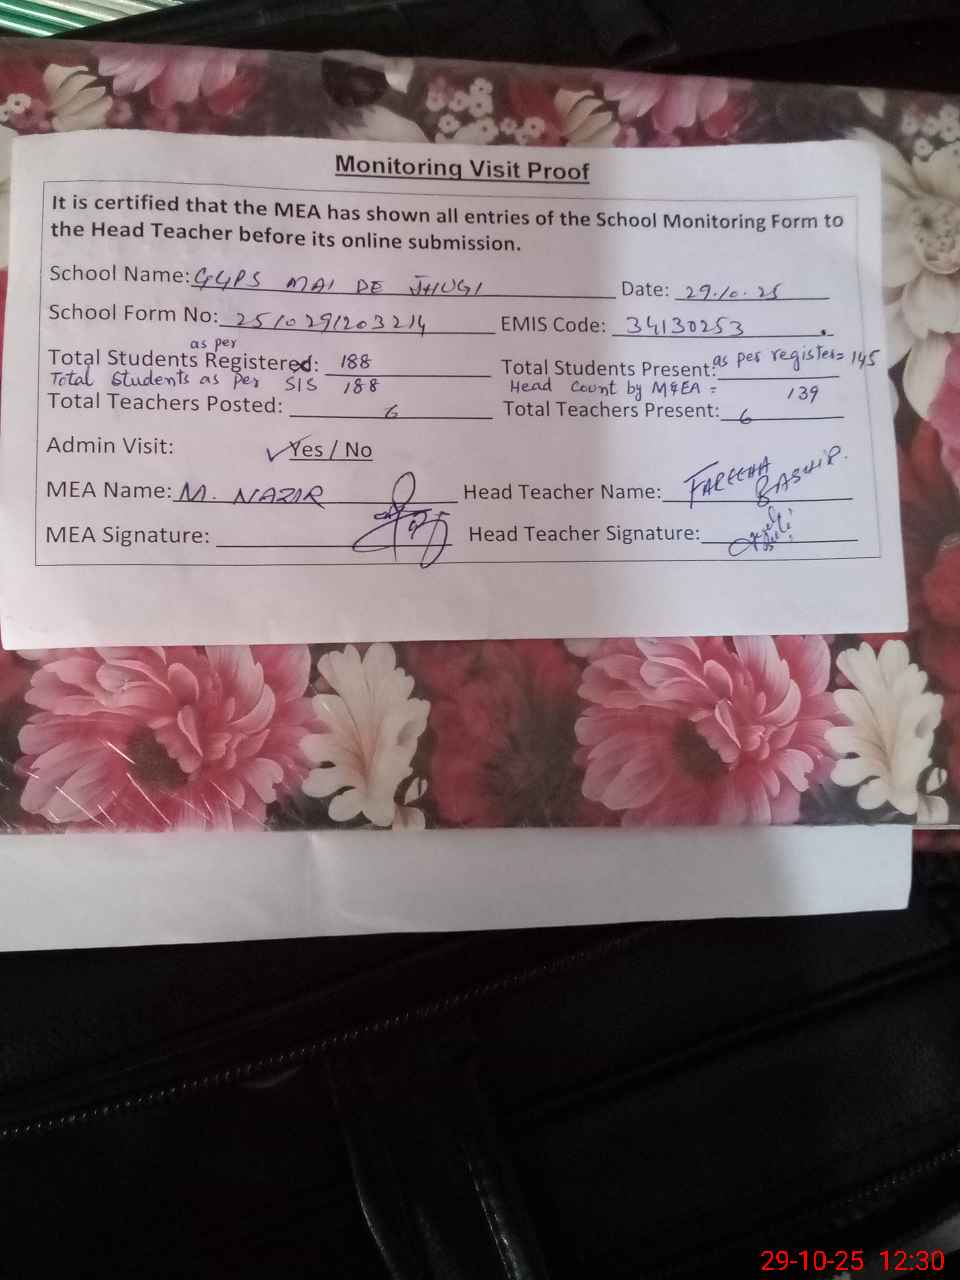 Monitoring Visit Proof
It is certified that the MEA has shown all entries of the School Monitoring Form to
the Head Teacher before its online submission.
School Name: GGPS MAI DE JHUGI Date: 29.10.25
School Form No: 2510291203214 EMIS Code: 34130253
as per
Total Students Registered: 188 Total Students Present: as per register= 145
Total Students as per SIS 188 Head Count by M&EA = 139
Total Teachers Posted: 6 Total Teachers Present: 6
Admin Visit: ✓Yes / No
MEA Name: M. NAZIR Head Teacher Name: FAREEHA BASHIR.
MEA Signature: Head Teacher Signature:
29-10-25 12:30